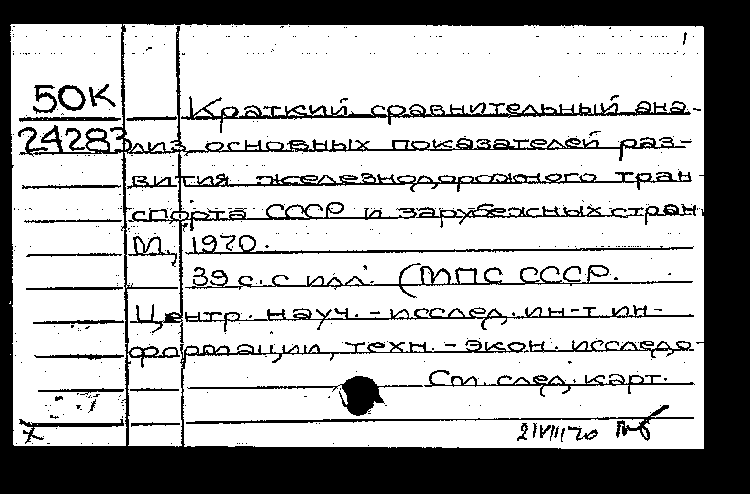 1
50К Краткий сравнительный ана-
24283 лиз основных показателей раз-
вития железнодорожного тран-
спорта СССР и зарубежных стран.
М., 1970.
39 с. с илл. (МПС СССР.
Центр. науч.-исслед. ин-т ин-
формации, техн.-экон. исследо-
См. след. карт.
21VIII70